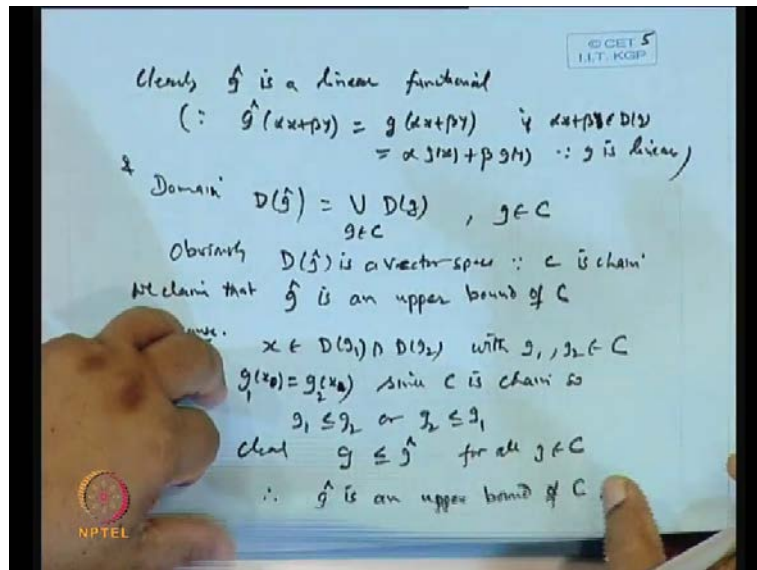 © CET 5
I.I.T. KGP
Clearly ĝ is a linear functional
(∵ ĝ(αx+βy) = g(αx+βy) if αx+βy ∈ D(g)
= α g(x) + β g(y) ∵ g is linear)
& Domain D(ĝ) = ∪ D(g) , g ∈ C
g∈C
Obviously D(ĝ) is a vector space ∵ C is chain
We claim that ĝ is an upper bound of C
x ∈ D(g₁) ∩ D(g₂) with g₁, g₂ ∈ C
g₁(x) = g₂(x) since C is chain so
g₁ ≤ g₂ or g₂ ≤ g₁
clear g ≤ ĝ for all g ∈ C
∴ ĝ is an upper bound of C
NPTEL